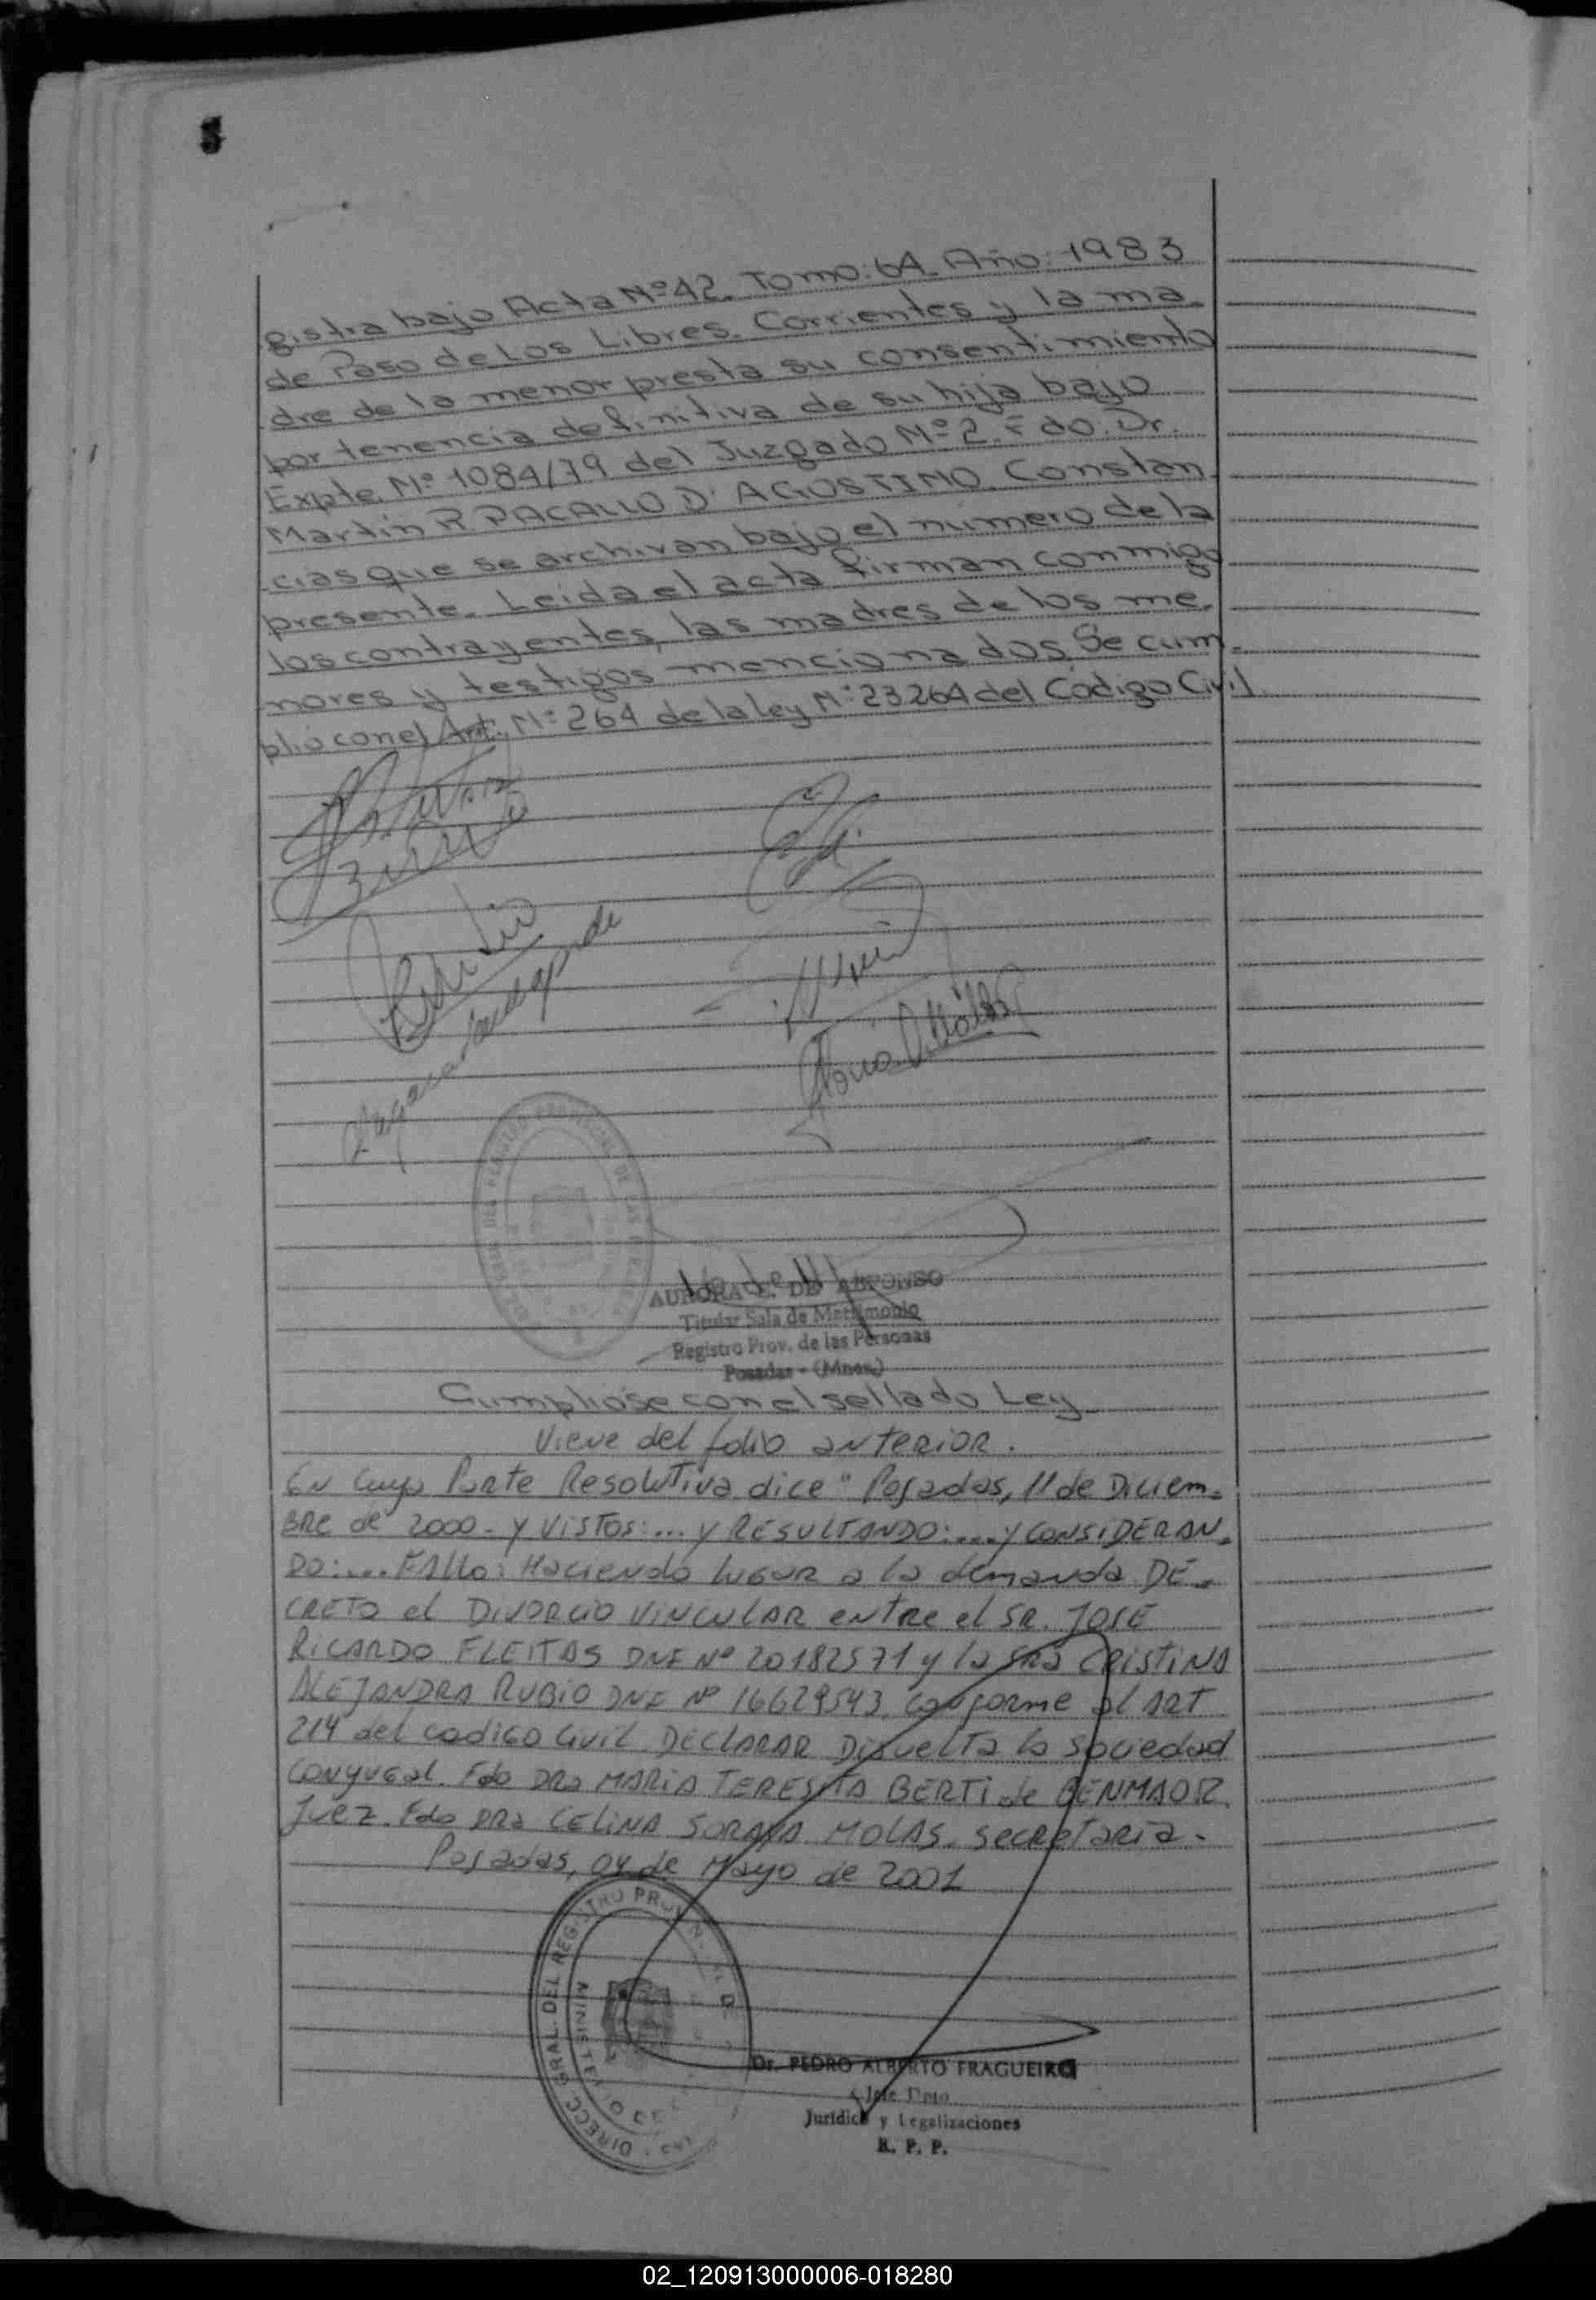 gistra bajo Acta Nº 42. Tomo: 6A. Año: 1983
de Paso de Los Libres. Corrientes y la ma-
dre de la menor presta su consentimiento
por tenencia definitiva de su hija bajo
Expte. Nº 1084/79 del Juzgado Nº 2. Fdo. Dr.
Martín R PACALLO D'AGOSTINO. Constan-
cias que se archivan bajo el número de la
presente. Leida el acta firman conmigo
los contrayentes, las madres de los me-
nores y testigos mencionados Se cum-
plió con el Art. Nº 264 de la ley Nº 23264 del Código Civil
AURORA E. DE
Titular Sala de Matrimonio
Registro Prov. de las Personas
Posadas - (Mnes.)
Cumplióse con el sellado Ley
Viene del folio anterior.
En cuya Parte Resolutiva dice "Posadas, 11 de Diciem-
BRE de 2000 - y VISTOS:... y RESULTANDO:... y CONSIDERAN-
DO:... FALLO: Haciendo LUGAR a la demanda DE-
CRETO el DIVORCIO VINCULAR entre el SR. JOSE
RICARDO FLEITAS DNI Nº 20182571 y la SRA CRISTINA
ALEJANDRA RUBIO DNI Nº 16629543, conforme al ART
214 del codigo Civil. DECLARAR Disuelta la Sociedad
CONYUGAL. Fdo DRA MARIA TERESITA BERTI de BENMAOR.
Juez. Fdo DRA CELINA SORAYA MOLAS. Secretaria.
Posadas, 04 de Mayo de 2001
DIRECC. GRAL. DEL REGISTRO
Dr. PEDRO ALBERTO FRAGUEIRO
Jefe Dpto.
Jurídico y Legalizaciones
R. P. P.
02_120913000006-018280